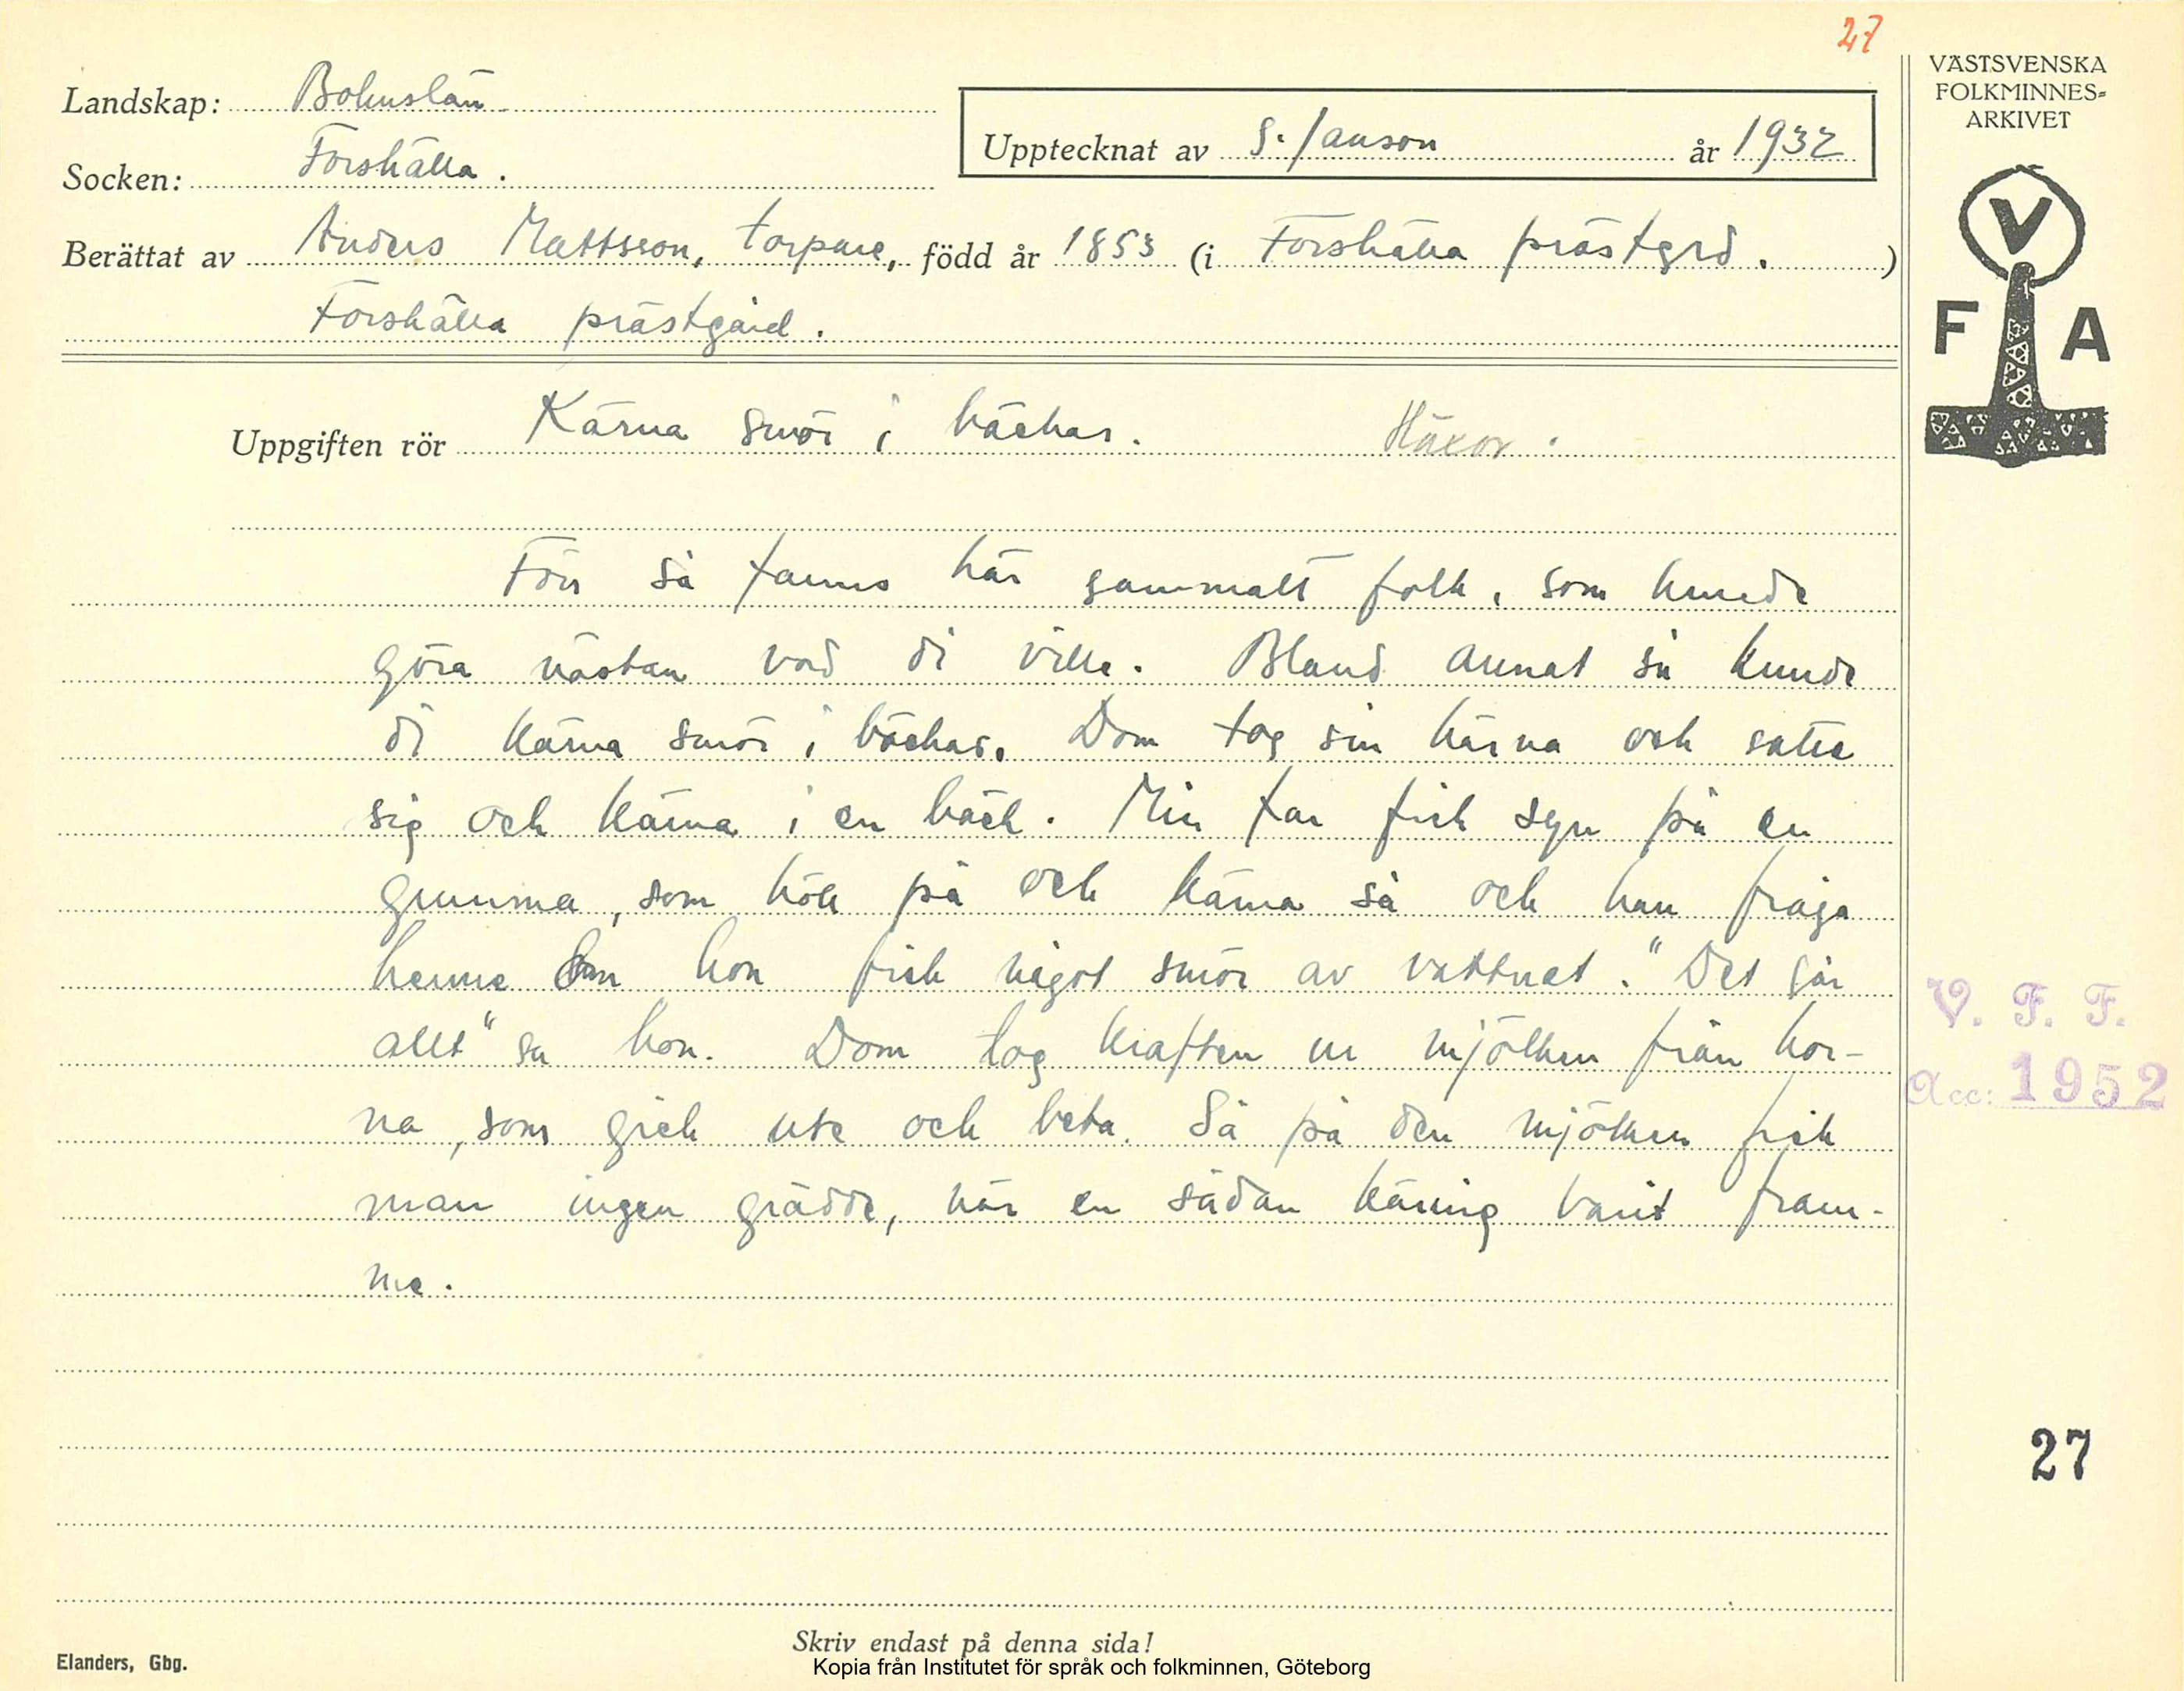 27
VÄSTSVENSKA
FOLKMINNES-
ARKIVET
Landskap: Bohuslän
Upptecknat av S. Janson år 1932
Socken: Forshälla.
Berättat av Anders Mattsson, torpare, född år 1853 (i Forshälla prästgrd.)
Forshälla prästgård.
V
F A
Uppgiften rör Kärna smör i bäckar. Häxor.
Förr så fanns här gammalt folk, som kunde
göra nästan vad di ville. Bland annat så kunde
di kärna smör i bäckar. Dom tog sin kärna och satte
sig och kärna i en bäck. Min far fick syn på en
gumma, som höll på och kärna så och han fråga
henne om hon fick något smör av vattnet. "Det går
allt" sa hon. Dom tog kraften ur mjölken från kor-
na, som gick ute och beta. Så på den mjölken fick
man ingen grädde, när en sådan käring varit fram-
me.
V. F. F.
Acc: 1952
27
Skriv endast på denna sida!
Elanders, Gbg.
Kopia från Institutet för språk och folkminnen, Göteborg